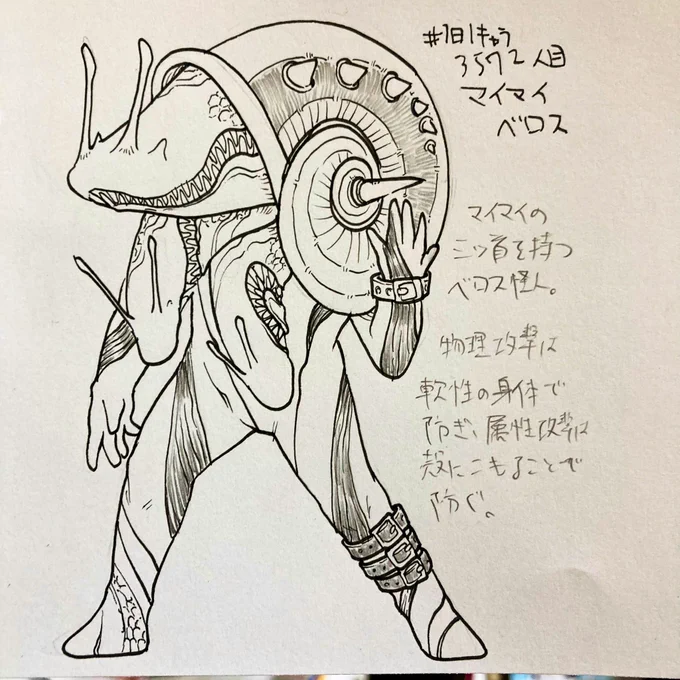 #1日1キャラ
3572人目
マイマイ
ベロス
マイマイの
三ッ首を持つ
ベロス怪人。
物理攻撃は
軟性の身体で
防ぎ、属性攻撃は
殻にこもることで
防ぐ。